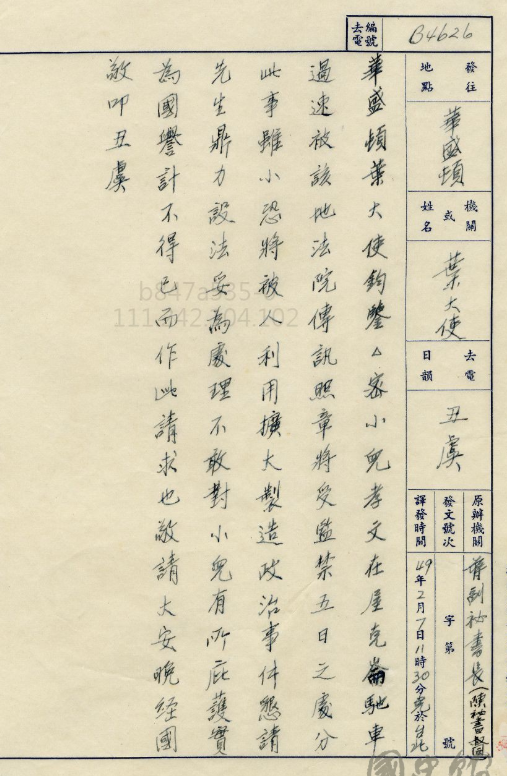 編號
去電
B4626
發往
地點
華盛頓
機關
或
姓名
葉大使
去電
日韻
丑虞
原辦機關
發文號次
字第 號
譯發時間
49年2月7日11時30分
華盛頓葉大使鈞鑒△密小兒孝文在屋克崙馳車
過速被該地法院傳訊照章將受監禁五日之處分
此事雖小恐將被人利用擴大製造政治事件懇請
先生鼎力設法妥為處理不敢對小兒有所庇護實
為國譽計不得已而作此請求也敬請大安晚經國
敬叩丑虞